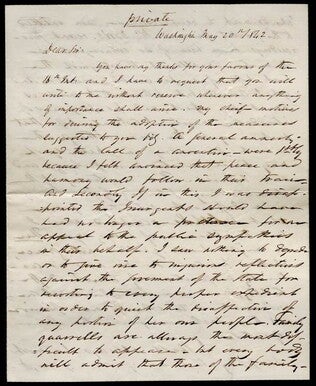 private
Washington May 20th 1842
Dear Sir.
You have my thanks for your favor of the
16th Inst: and I have to request that you will
write to me without reserve whenever any thing
of importance shall arise. My chief motives
for desiring the adoption of the measures
suggested to you viz the general amnesty
and the call of a convention were 1stly
because I felt convinced that peace and
harmony would follow in their train—
and secondly if in this I was disap-
pointed the Insurgents would have
had no longer a pretence for an
appeal to the public sympathies
in their behalf. I saw nothing to
or to give rise to injurious reflections
against the government of the State for
resorting to every proper expedient
in order to quiet the disaffection of
any portion of her own people. Family
quarrels are always the most dif-
ficult to appease but every body
will admit that those of the family